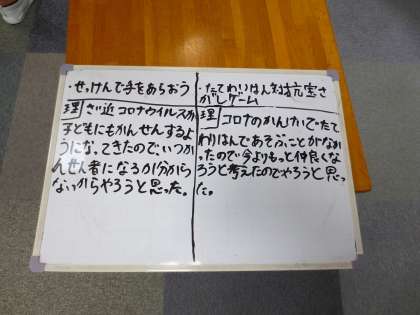 ・せっけんで手をあらおう
理 さい近コロナウイルスが
子どもにもかんせんするよ
うになってきたので、いつか
んせん者になるか分から
ないからやろうと思った。
・たてわりはん対抗宝さ
がしゲーム
理 コロナのかんけいでたて
わりはんであそぶことがなか
ったので今よりもっと仲良くな
ろうと考えたのでやろうと思っ
た。